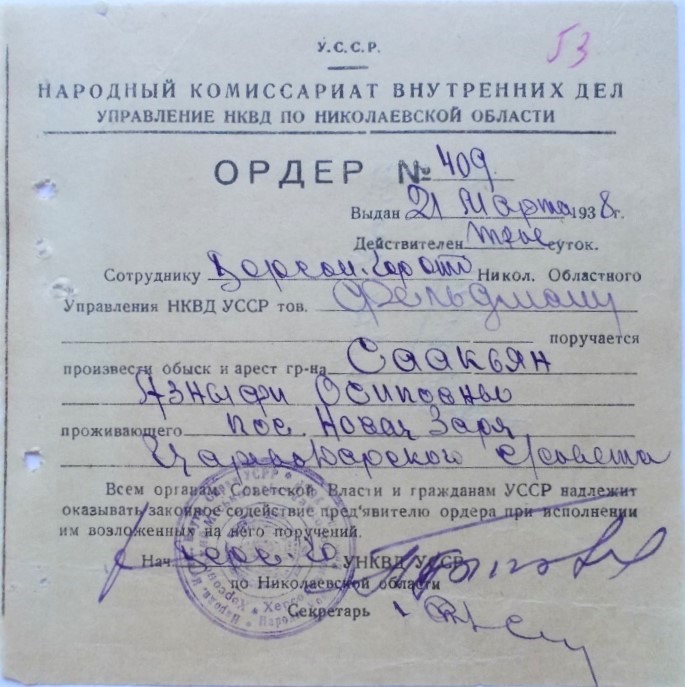 53
У.С.С.Р.
НАРОДНЫЙ КОМИССАРИАТ ВНУТРЕННИХ ДЕЛ
УПРАВЛЕНИЕ НКВД ПО НИКОЛАЕВСКОЙ ОБЛАСТИ
ОРДЕР № 409
Выдан 21 Марта 1938 г.
Действителен трое суток.
Сотруднику Никол. Областного
Управления НКВД УССР тов. Фельдману
поручается
произвести обыск и арест гр-на Саакьян
Осиповны
проживающего пос. Новая Заря
Всем органам Советской Власти и гражданам УССР надлежит
оказывать законное содействие пред'явителю ордера при исполнении
им возложенных на него поручений.
Нач УНКВД УССР
по Николаевской области
Секретарь